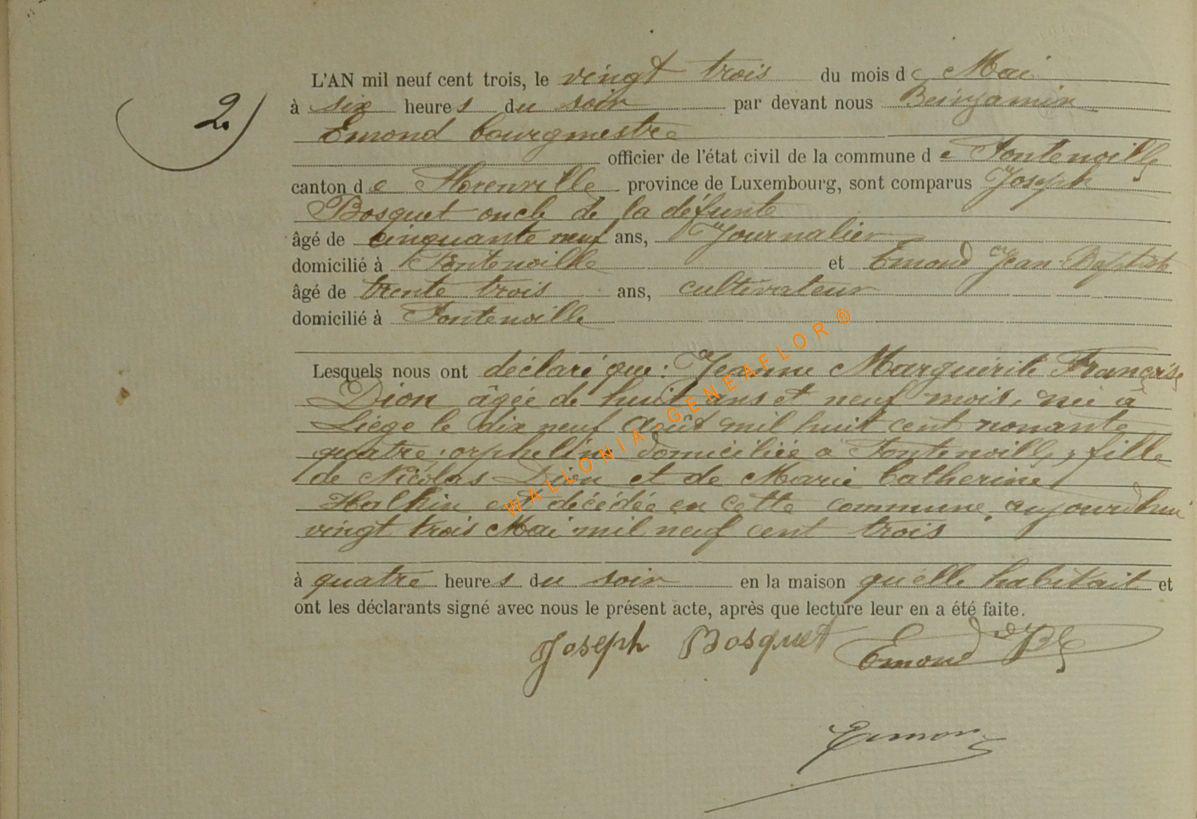 2)
L'AN mil neuf cent trois, le vingt trois du mois de Mai
à six heures du soir par devant nous Benjamin
Emond bourgmestre
officier de l'état civil de la commune de Fontenoille
canton de Florenville province de Luxembourg, sont comparus Joseph
Bosquet oncle de la défunte
âgé de cinquante neuf ans, Journalier
domicilié à Fontenoille et Emond Jean-Baptiste
âgé de trente trois ans, cultivateur
domicilié à Fontenoille
Lesquels nous ont déclaré que: Jeanne Marguérite Françoise
Dion âgée de huit ans et neuf mois, née à
Liège le dix neuf Août mil huit cent nonante
quatre, orpheline domiciliée à Fontenoille, fille
de Nicolas Dion et de Marie Catherine
Halkin est décédée en cette commune aujourd'hui
vingt trois Mai mil neuf cent trois
à quatre heures du soir en la maison qu'elle habitait et
ont les déclarants signé avec nous le présent acte, après que lecture leur en a été faite.
Joseph Bosquet Emond JB
Emond
WALLONIA-GENEAFLOR ©